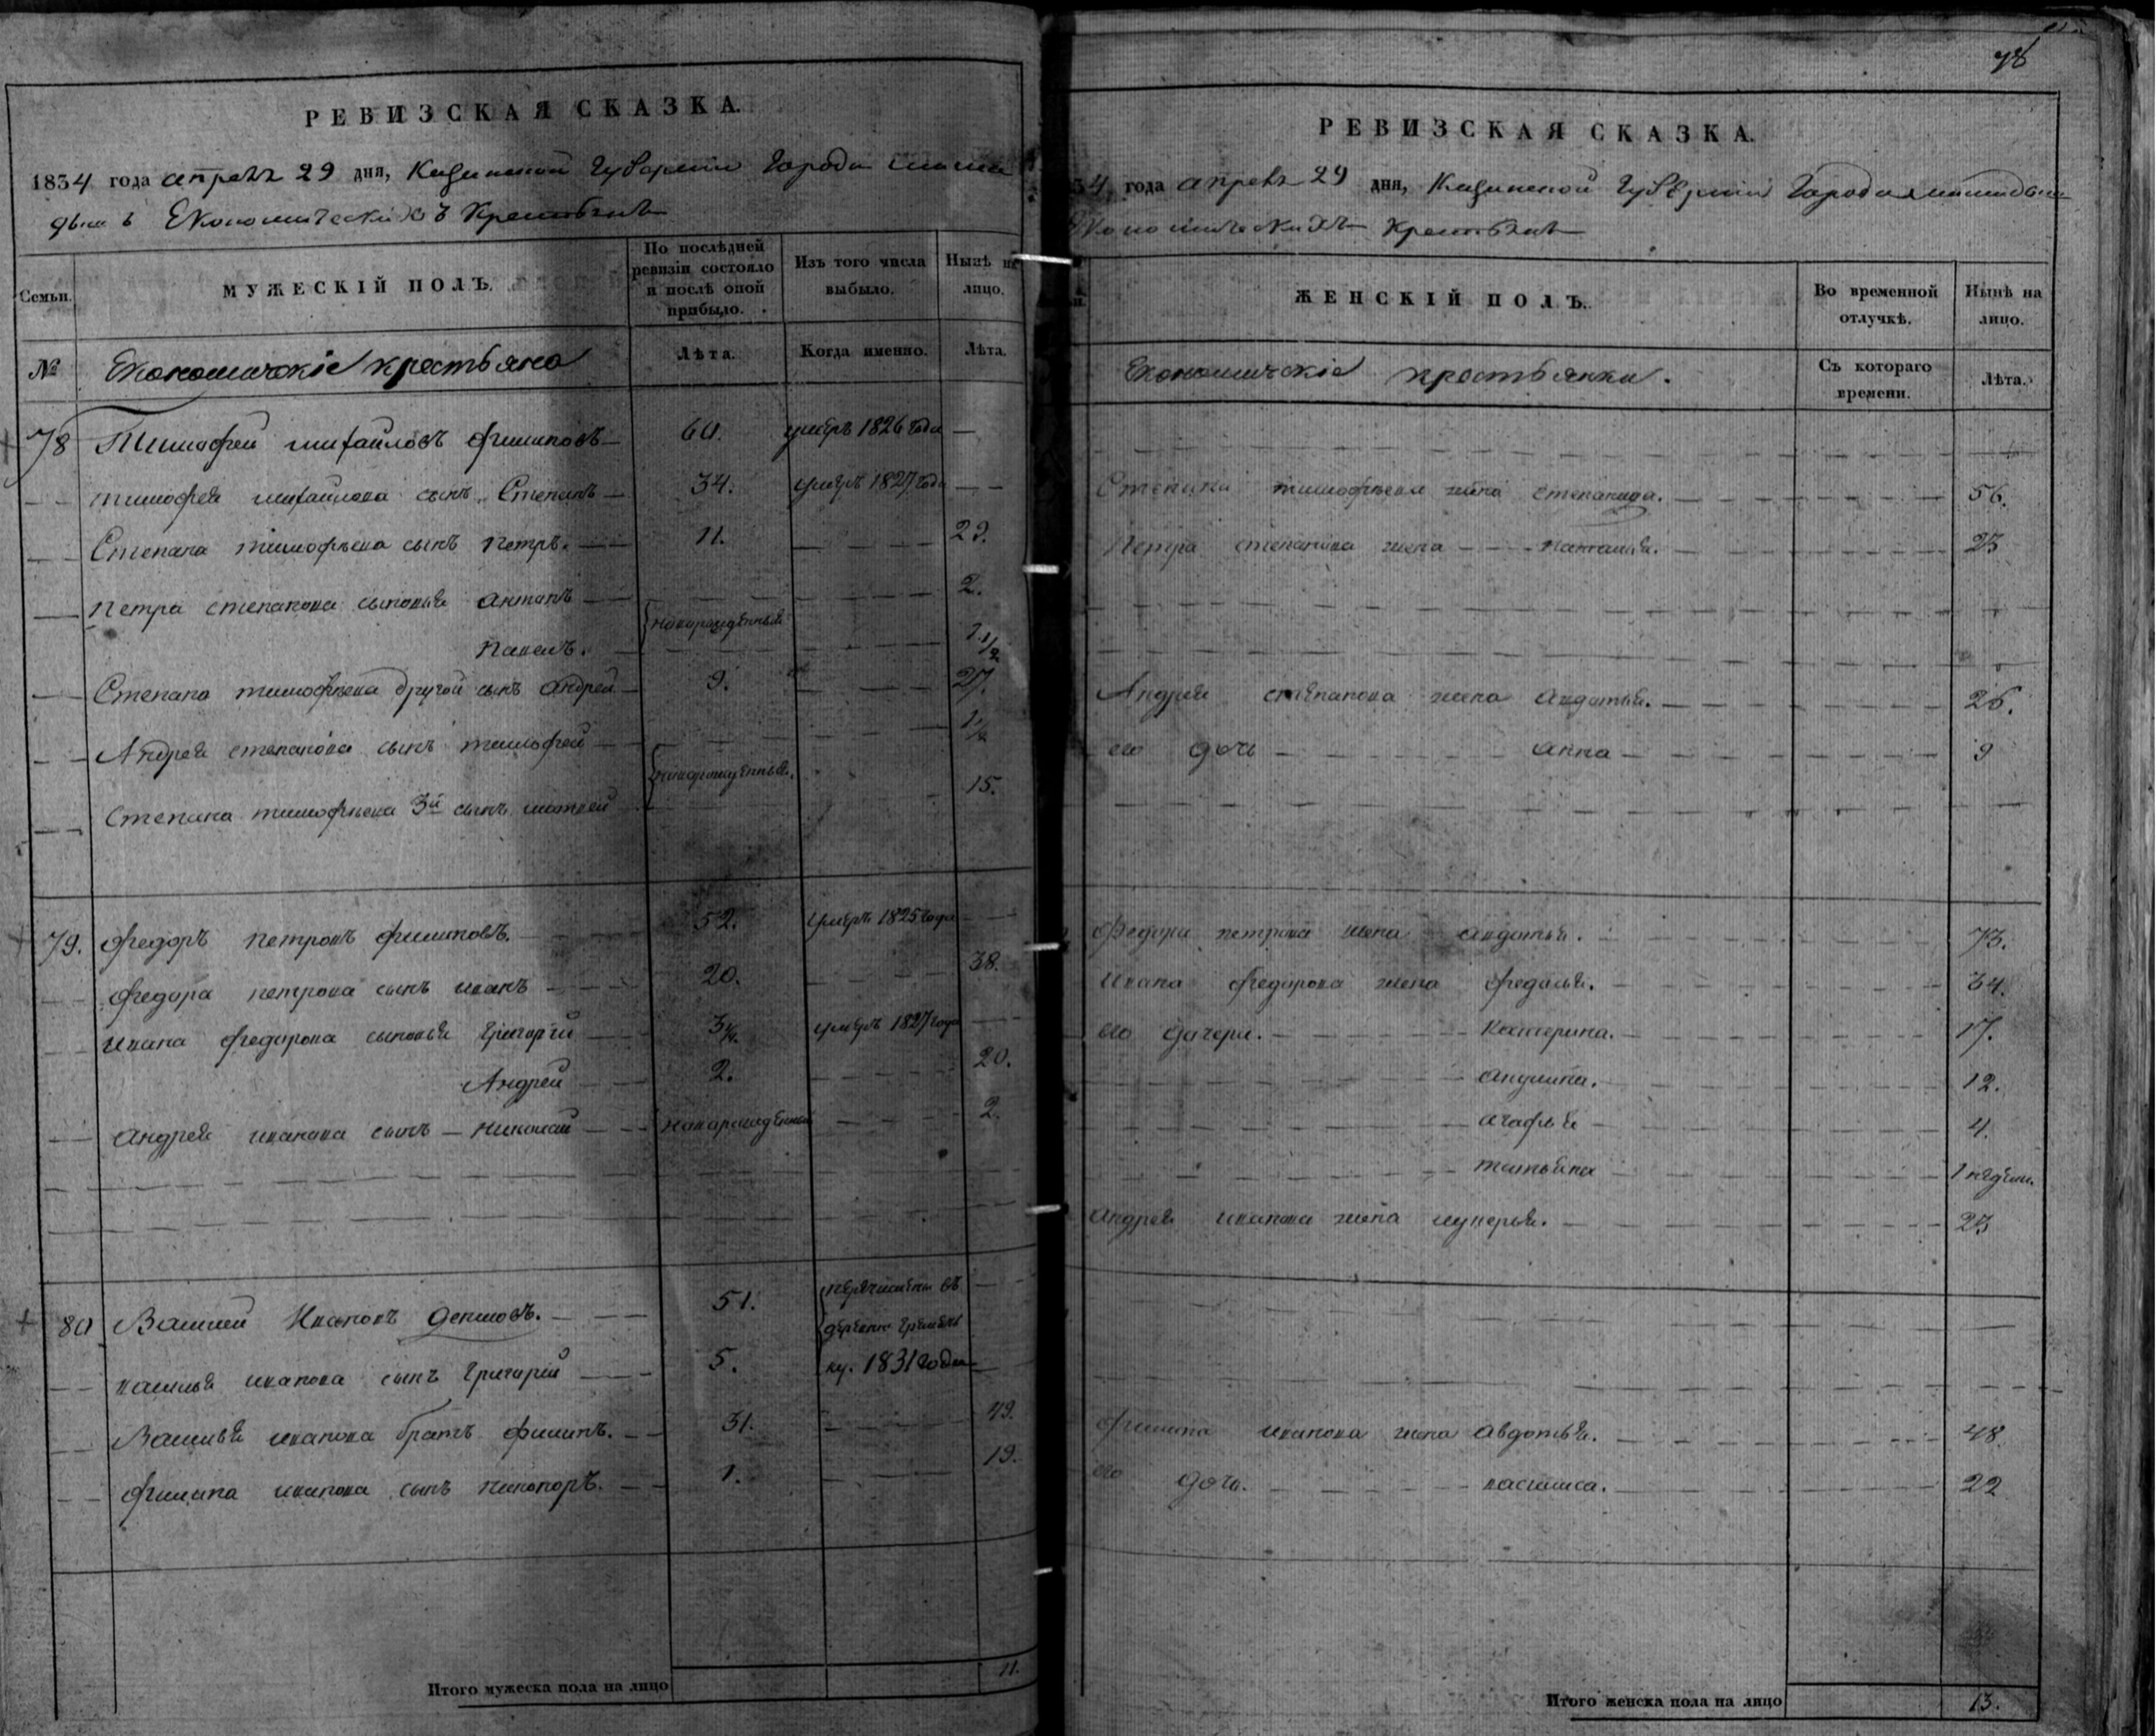 РЕВИЗСКАЯ СКАЗКА.
1834 года апреля 29 дня, Казанской Губернии Города мама
дыша Економическихъ Крестьянъ
Семьи.
МУЖЕСКІЙ ПОЛЪ.
По послѣдней ревизіи состояло и послѣ оной прибыло.
Изъ того числа выбыло.
Нынѣ на лицо.
№
Економическіе крестьяне
Лѣта.
Когда именно.
Лѣта.
78 Тимофей михайловъ филиповъ 60. умеръ 1826 года
тимофея михайлова сынъ Степанъ 34. умеръ 1827 года
Степана тимофѣева сынъ петръ. 11. 29.
петра степанова сыновья антапъ 2.
новорожденныя
павелъ. 1 1/2
Степана тимофѣева другой сынъ андрей 9. 27.
Андрея степанова сынъ тимофей 1/2
новорожденныя.
степана тимофѣева 3й сынъ матвей 15.
79. федоръ петровъ филиповъ. 52. умеръ 1825 года
федора петрова сынъ иванъ 20. 38.
ивана федорова сыновья григорій 3/4. умеръ 1827 года
Андрей 2. 20.
андрея иванова сынъ николай новорожденный 2.
80 Василей Ивановъ денисовъ. 51. перечислены въ
деревню
василья иванова сынъ григорій 5. ку. 1831 года
Василья иванова братъ филипъ. 31. 49.
филипа иванова сынъ никопоръ. 1. 19.
Итого мужеска пола на лицо 11.
78
РЕВИЗСКАЯ СКАЗКА.
34 года апреля 29 дня, Казанской Губерніи Города мамадыша
Економическихъ крестьянъ
ЖЕНСКІЙ ПОЛЪ.
Во временной отлучкѣ.
Нынѣ на лицо.
Економическіе крестьянки.
Съ котораго времени.
Лѣта.
Степана тимофѣева жена степанида. 56.
петра степанова жена наталия. 23
Андрея степанова жена авдотья. 26.
его дочь анна 9
федора петрова жена авдотья. 73.
ивана федорова жена федосья. 34.
его дачери. катерина. 17.
акулина. 12.
агафья 4.
татьяна 1 недели.
андрея иванова жена лукерья. 23
филипа иванова жена авдотья. 48.
его дочь. василиса. 22
Итого женска пола на лицо 13.